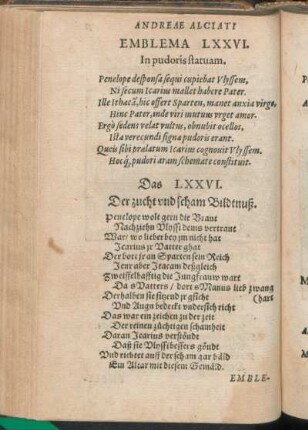 ANDREAE ALCIATI
EMBLEMA LXXVI.
In pudoris statuam.
Penelope desponsa sequi cupiebat Vlyssem,
Ni secum Icarius mallet habere Pater.
Ille Ithacã, hic offert Sparten, manet anxia virgo,
Hinc Pater, inde viri mutuus vrget amor.
Ergò sedens velat vultus, obnubit ocellos,
Ista verecundi signa pudoris erant.
Queis sibi prælatum Icarius cognouit Vlyssem,
Hocq́; pudori aram schemate constituit.
Das LXXVI.
Der zucht vnd scham Bildtnuß.
Penelope wolt gern die Braut
Nachziehn Vlyssi denis vertraut
War/ wo lieber bey jm nicht hat
Icarius jr Vatter ghat
Der bott jr an Sparten sein Reich
Jenr aber Itacam deßgleich
Zweiffelhafftig die Jungfrauw wart
Da s Vatters/ dort s Manns lieb zwang
Derhalben sie sitzend jr gsicht
Chart
Vnd Augn bedeckt vndersich richt
Das war ein zeichen zu der zeit
Der reinen züchtigen schamheit
Daran Icarius verstůndt
Daß sie Vlyssi bessers gündt
Vnd richtet auff der scham gar bald
Ein Altar mit diesem Gemäld.
EMBLE-